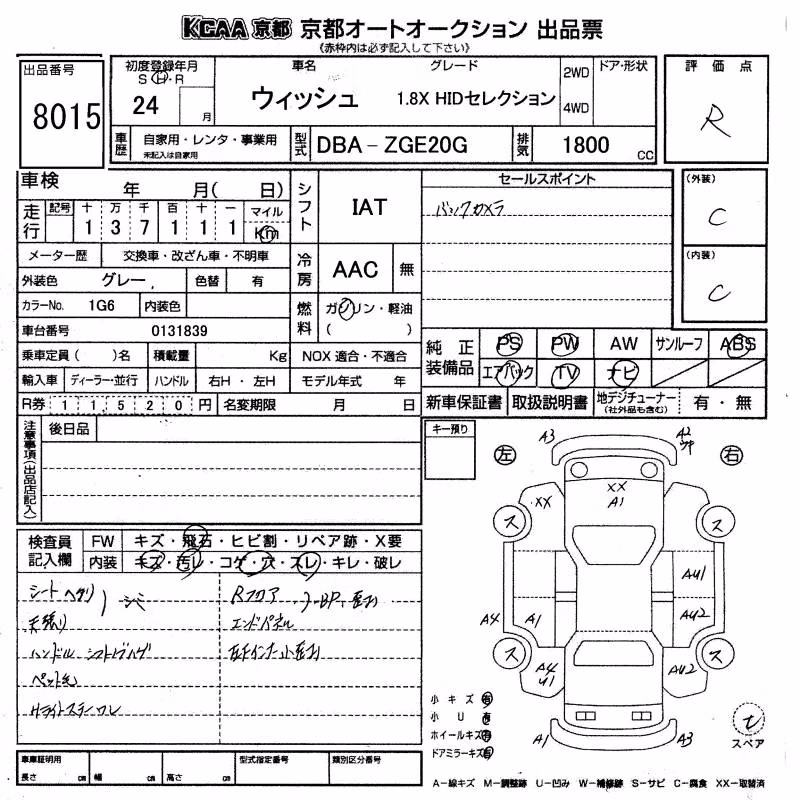 KCAA 京都 京都オートオークション 出品票
《赤枠内は必ず記入して下さい》
出品番号
8015
初度登録年月
S H・R
24
月
車名
ウィッシュ
グレード
1.8X HIDセレクション
2WD
4WD
ドア・形状
評価点
R
車歴
自家用・レンタ・事業用
未記入は自家用
型式
DBA－ZGE20G
排気
1800
CC
車検
年 月( 日)
走行
記号 十 万 千 百 十 一 マイル
1 3 7 1 1 1 Km
メーター歴 交換車・改ざん車・不明車
外装色 グレー
色替 有
カラーNo. 1G6 内装色
車台番号 0131839
乗車定員( )名 積載量 Kg
輸入車 ディーラー・並行 ハンドル 右H・左H
R券 11520円 名変期限 月 日
シフト
IAT
冷房
AAC
無
燃料
ガソリン・軽油
( )
NOX 適合・不適合
モデル年式 年
セールスポイント
バックカメラ
(外装)
C
(内装)
C
純正装備品
PS PW AW サンルーフ ABS
エアバック TV ナビ
新車保証書 取扱説明書 地デジチューナー
(社外品も含む)
有・無
注意事項(出品店記入)
後日品
検査員記入欄
FW キズ・飛石・ヒビ割・リペア跡・X要
内装 キズ・汚レ・コゲ・穴・スレ・キレ・破レ
シートヘタリ
シミ
天張り
ハンドル シフトノブハゲ
ペット毛
Rフロア
エンドパネル
キー預り
左
右
A3
A2
XX
A1
XX
ス
ス
AU1
A4
A1
AU2
ス
ス
A4
U1
AU2
A1
A3
小キズ有
小U有
ホイールキズ有
ドアミラーキズ有
スペア
A―線キズ M―調整跡 U―凹み W―補修跡 S―サビ C―腐食 XX―取替済
車庫証明用
長さ cm 幅 cm 高さ cm
型式指定番号
類別区分番号